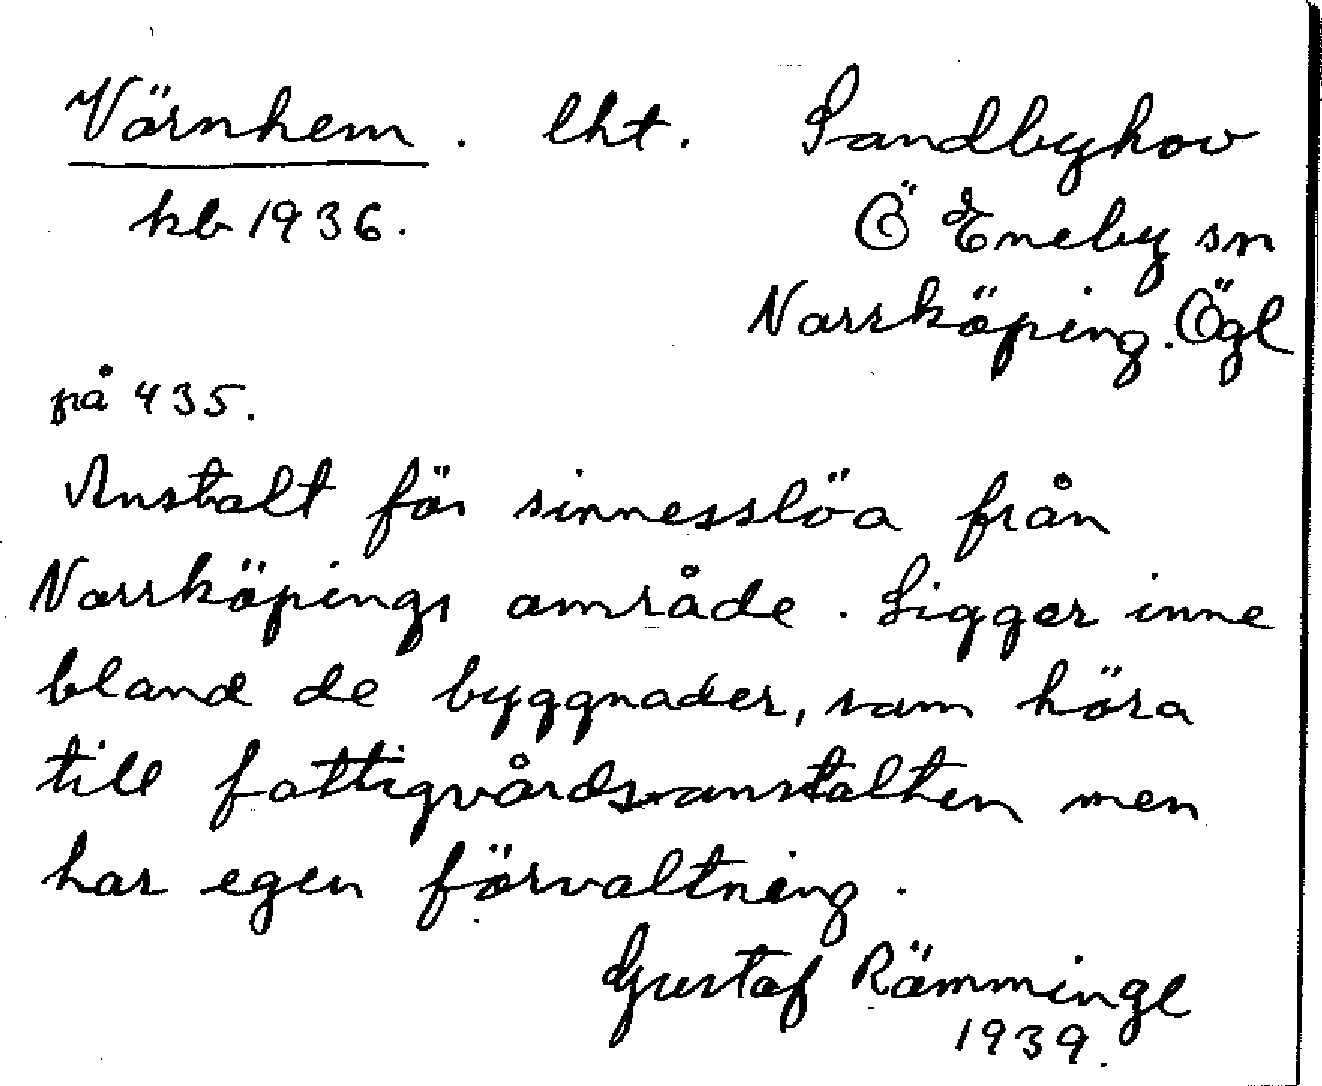 Värnhem. lht. Sandbyhov
kb 1936. Ö Eneby sn
Norrköping. Ögl
på 435.
Anstalt för sinnesslöa från
Norrköpings område. Ligger inne
bland de byggnader, som höra
till fattigvårdsanstalten men
har egen förvaltning.
Gustaf Rämmingl
1939.